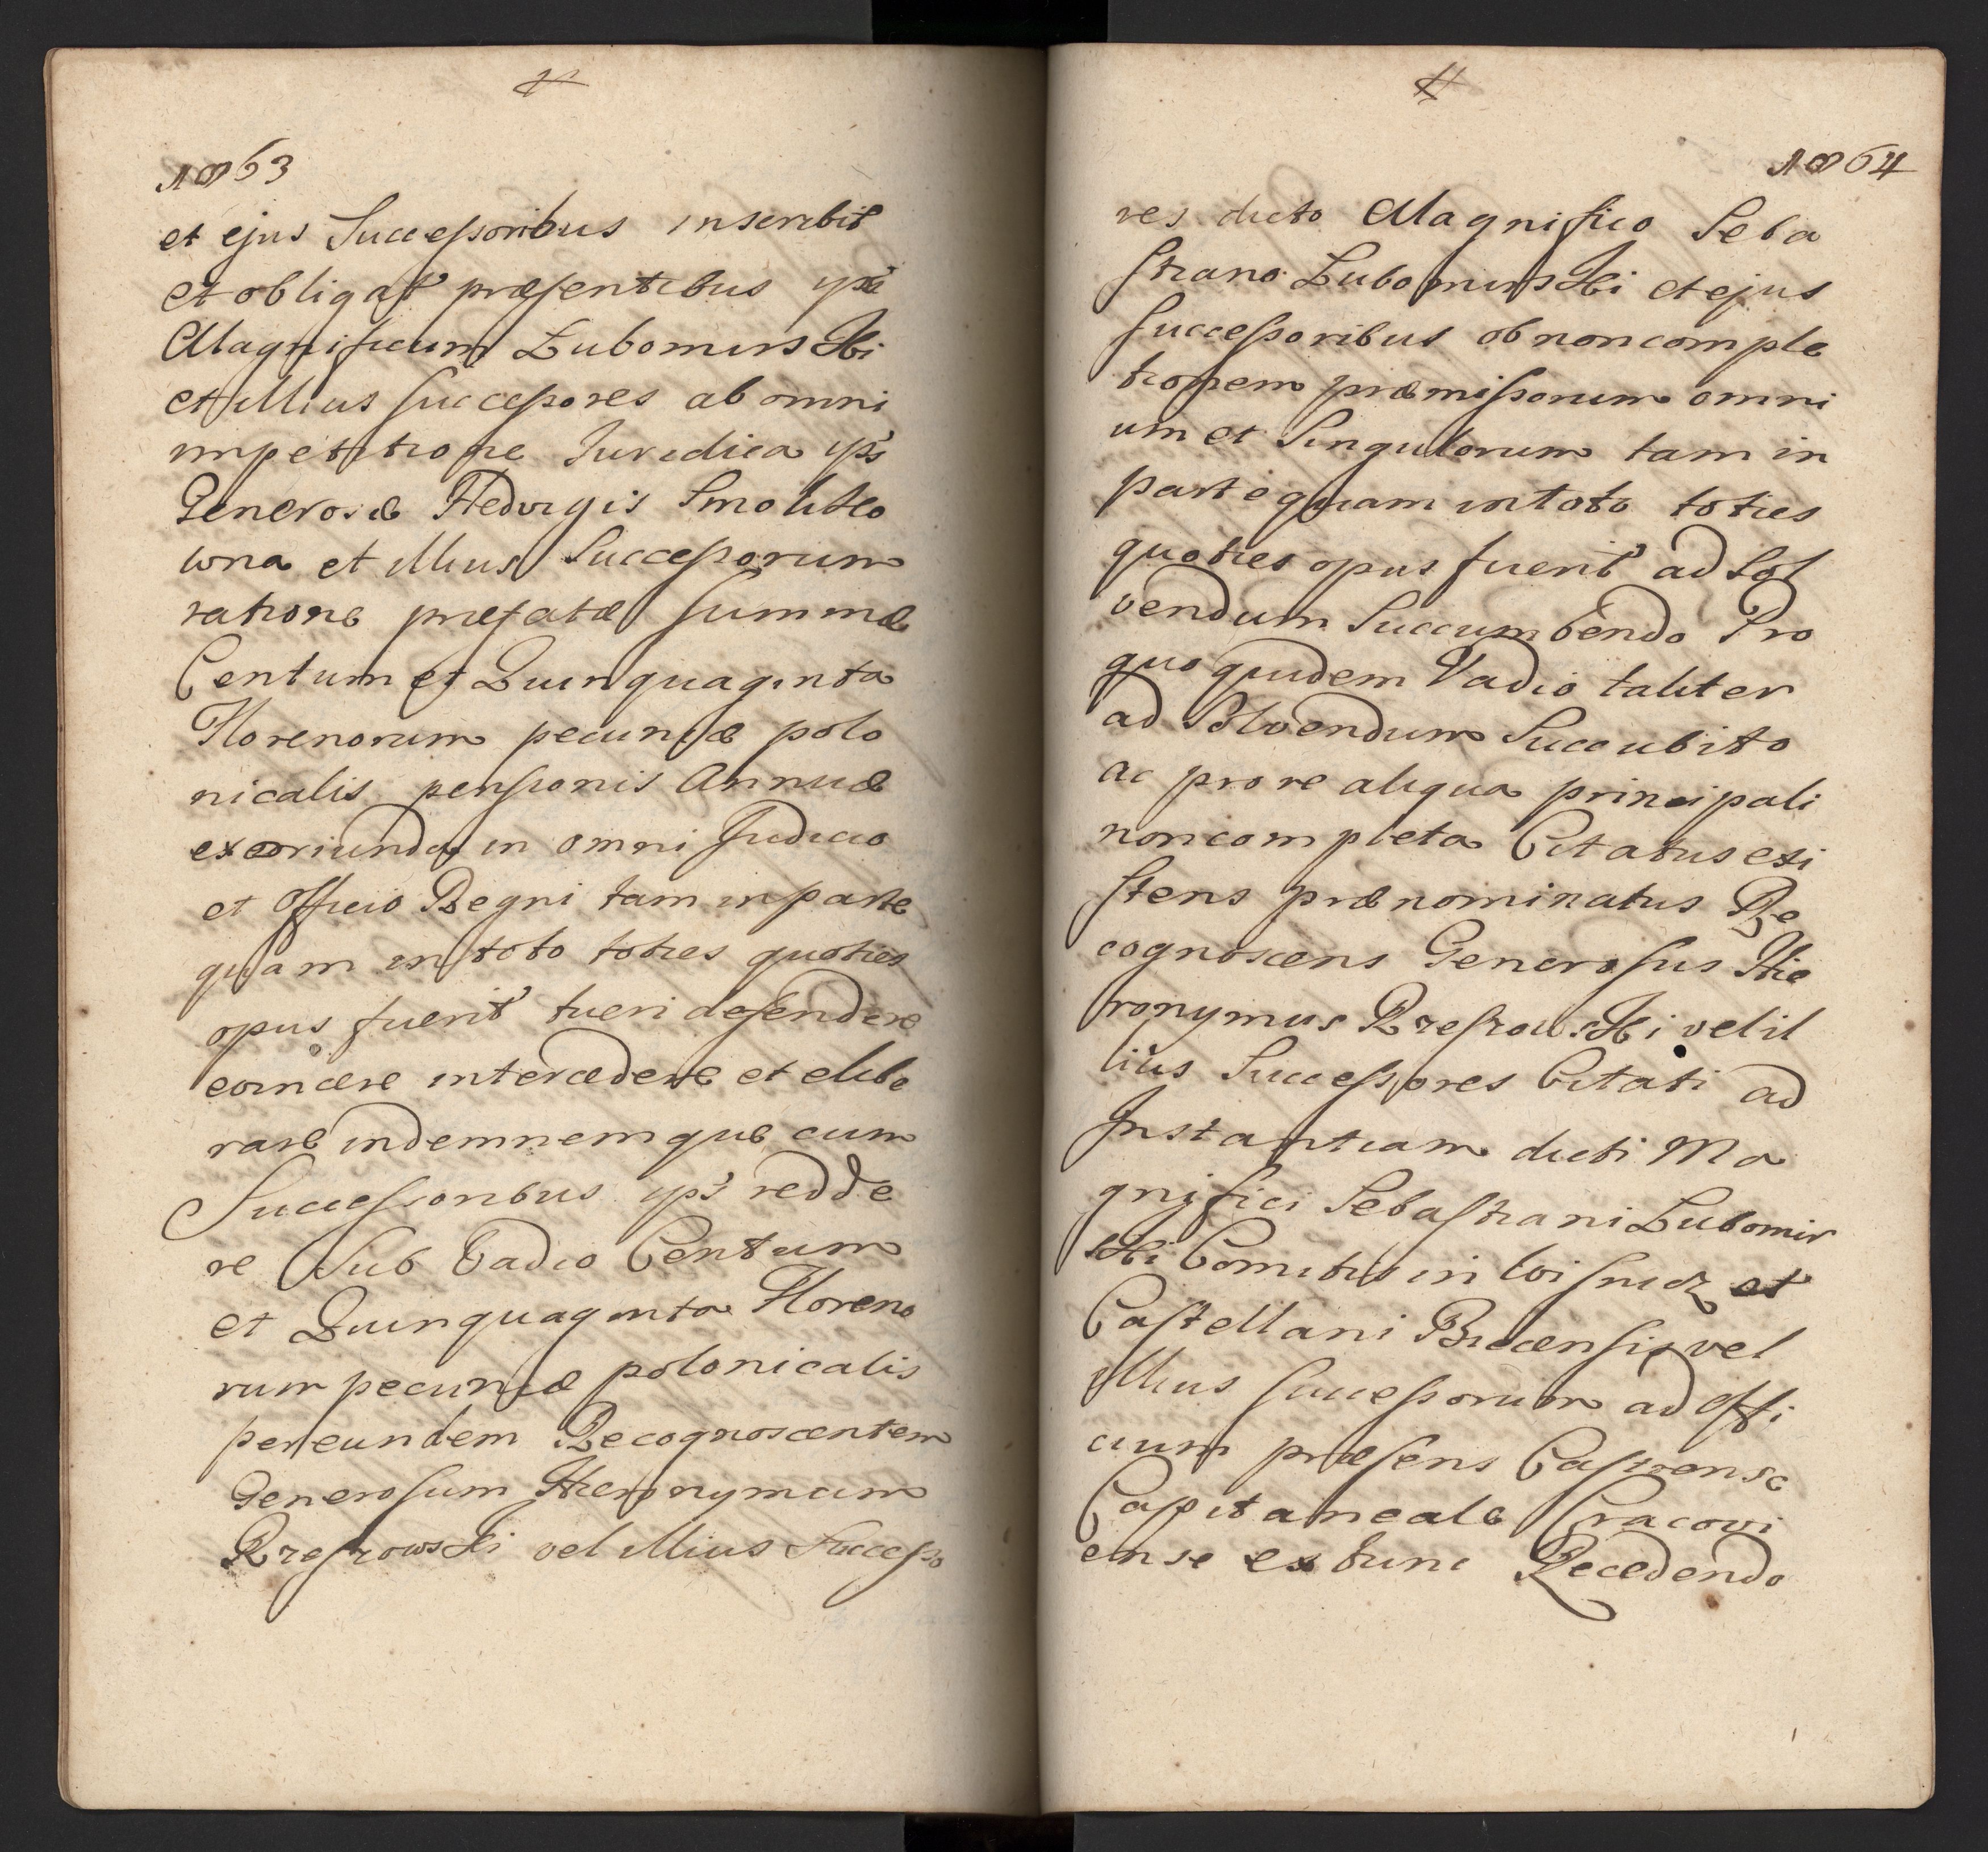 1063
et ejus Successoribus inscribit
et obligat præsentibus ipsũ
Magnificum Lubomirski
et illius successores ab omni
impetitione Juridica ips̃
Generosæ Hedvigis Smolitko
wna et illius Successorum
ratione præfatæ summæ
Centum et Quinquaginta
Florenorum pecuniæ polo
nicalis pensionis Annuæ
exoriunda in omni Judicio
et officio Regni tam in parte
quam in toto toties quoties
opus fuerit tueri defendere
evincere intercedere et elibe
rare indemnemque cum
Successoribus ips̃ redde
re Sub Vadio Centum
et Quinquaginta Floreno
rum pecuniæ polonicalis
per eundem Recognoscentem
Generosum Hieronymum
Rzeszowski vel illius Successo
1064
res dicto Magnifico Seba
stiano Lubomirski et ejus
successoribus ob non comple
tionem præmissorum omni
um et Singulorum tam in
parte quam in toto toties
quoties opus fuerit ad Sol
vendum Succumbendo Pro
quo quidem Vadio taliter
ad Solvendum Succubito
ac pro re aliqua principali
non completa Citatus exi
stens prænominatus Re
cognoscens Generosus Hie
ronymus Rzeszowski vel il
lius Successores Citati ad
Instantiam dicti Ma
gnifici Sebastiani Lubomir
ski Comitis in Wisnicz et
Castellani Biecensis vel
illius successorum ad offi
cium præsens Castrense
Capitaneale Cracovi
ense ex tunc Recedendo